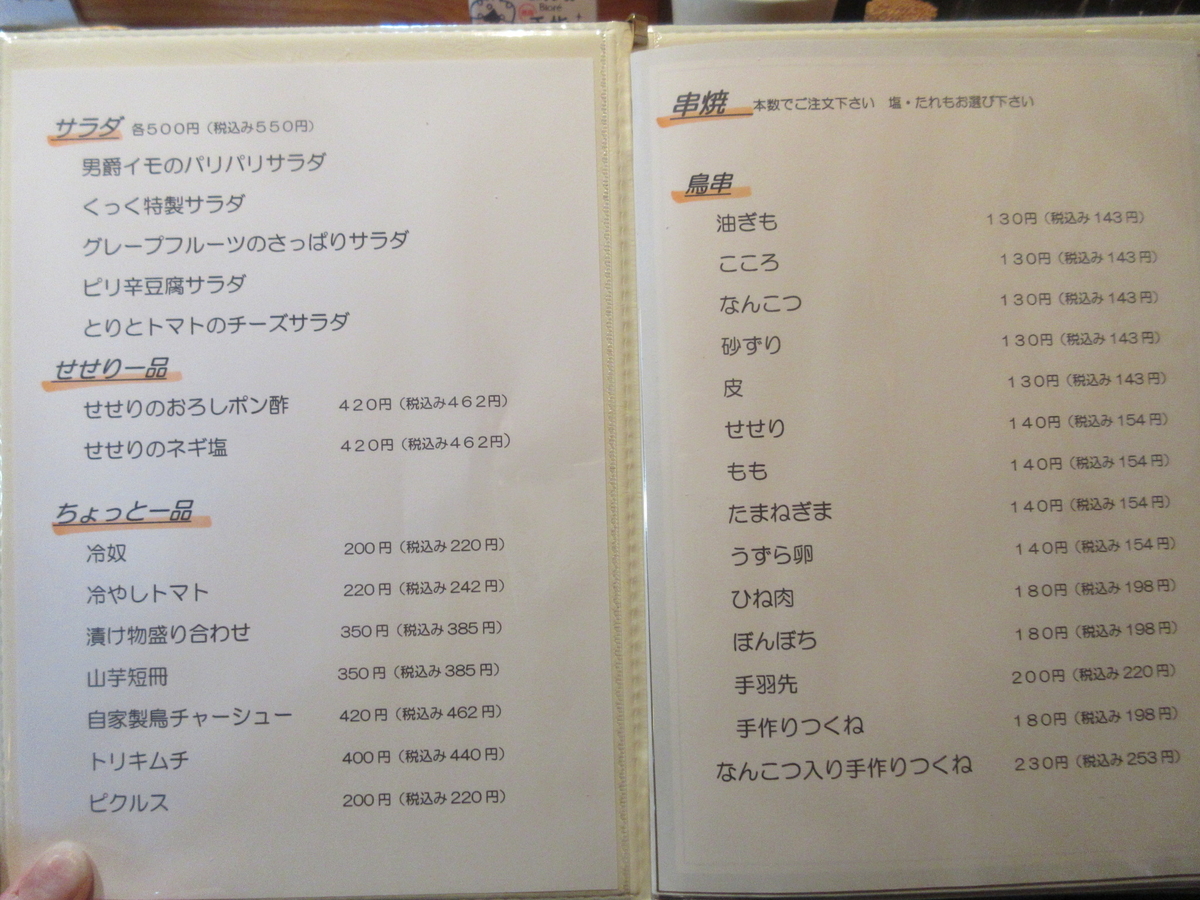 サラダ 各５００円（税込み５５０円）
男爵イモのパリパリサラダ
くっく特製サラダ
グレープフルーツのさっぱりサラダ
ピリ辛豆腐サラダ
とりとトマトのチーズサラダ
せせり一品
せせりのおろしポン酢 ４２０円（税込み４６２円）
せせりのネギ塩 ４２０円（税込み４６２円）
ちょっと一品
冷奴 200円（税込み220円）
冷やしトマト 220円（税込み242円）
漬け物盛り合わせ 350円（税込み385円）
山芋短冊 350円（税込み385円）
自家製鳥チャーシュー 420円（税込み462円）
トリキムチ 400円（税込み440円）
ピクルス 200円（税込み220円）
串焼 本数でご注文下さい 塩・たれもお選び下さい
鳥串
油ぎも １３０円（税込み143円）
こころ １３０円（税込み143円）
なんこつ １３０円（税込み143円）
砂ずり １３０円（税込み143円）
皮 １３０円（税込み143円）
せせり １４０円（税込み154円）
もも １４０円（税込み154円）
たまねぎま １４０円（税込み154円）
うずら卵 １４０円（税込み154円）
ひね肉 １８０円（税込み198円）
ぼんぼち １８０円（税込み198円）
手羽先 ２００円（税込み220円）
手作りつくね １８０円（税込み198円）
なんこつ入り手作りつくね ２３０円（税込み253円）